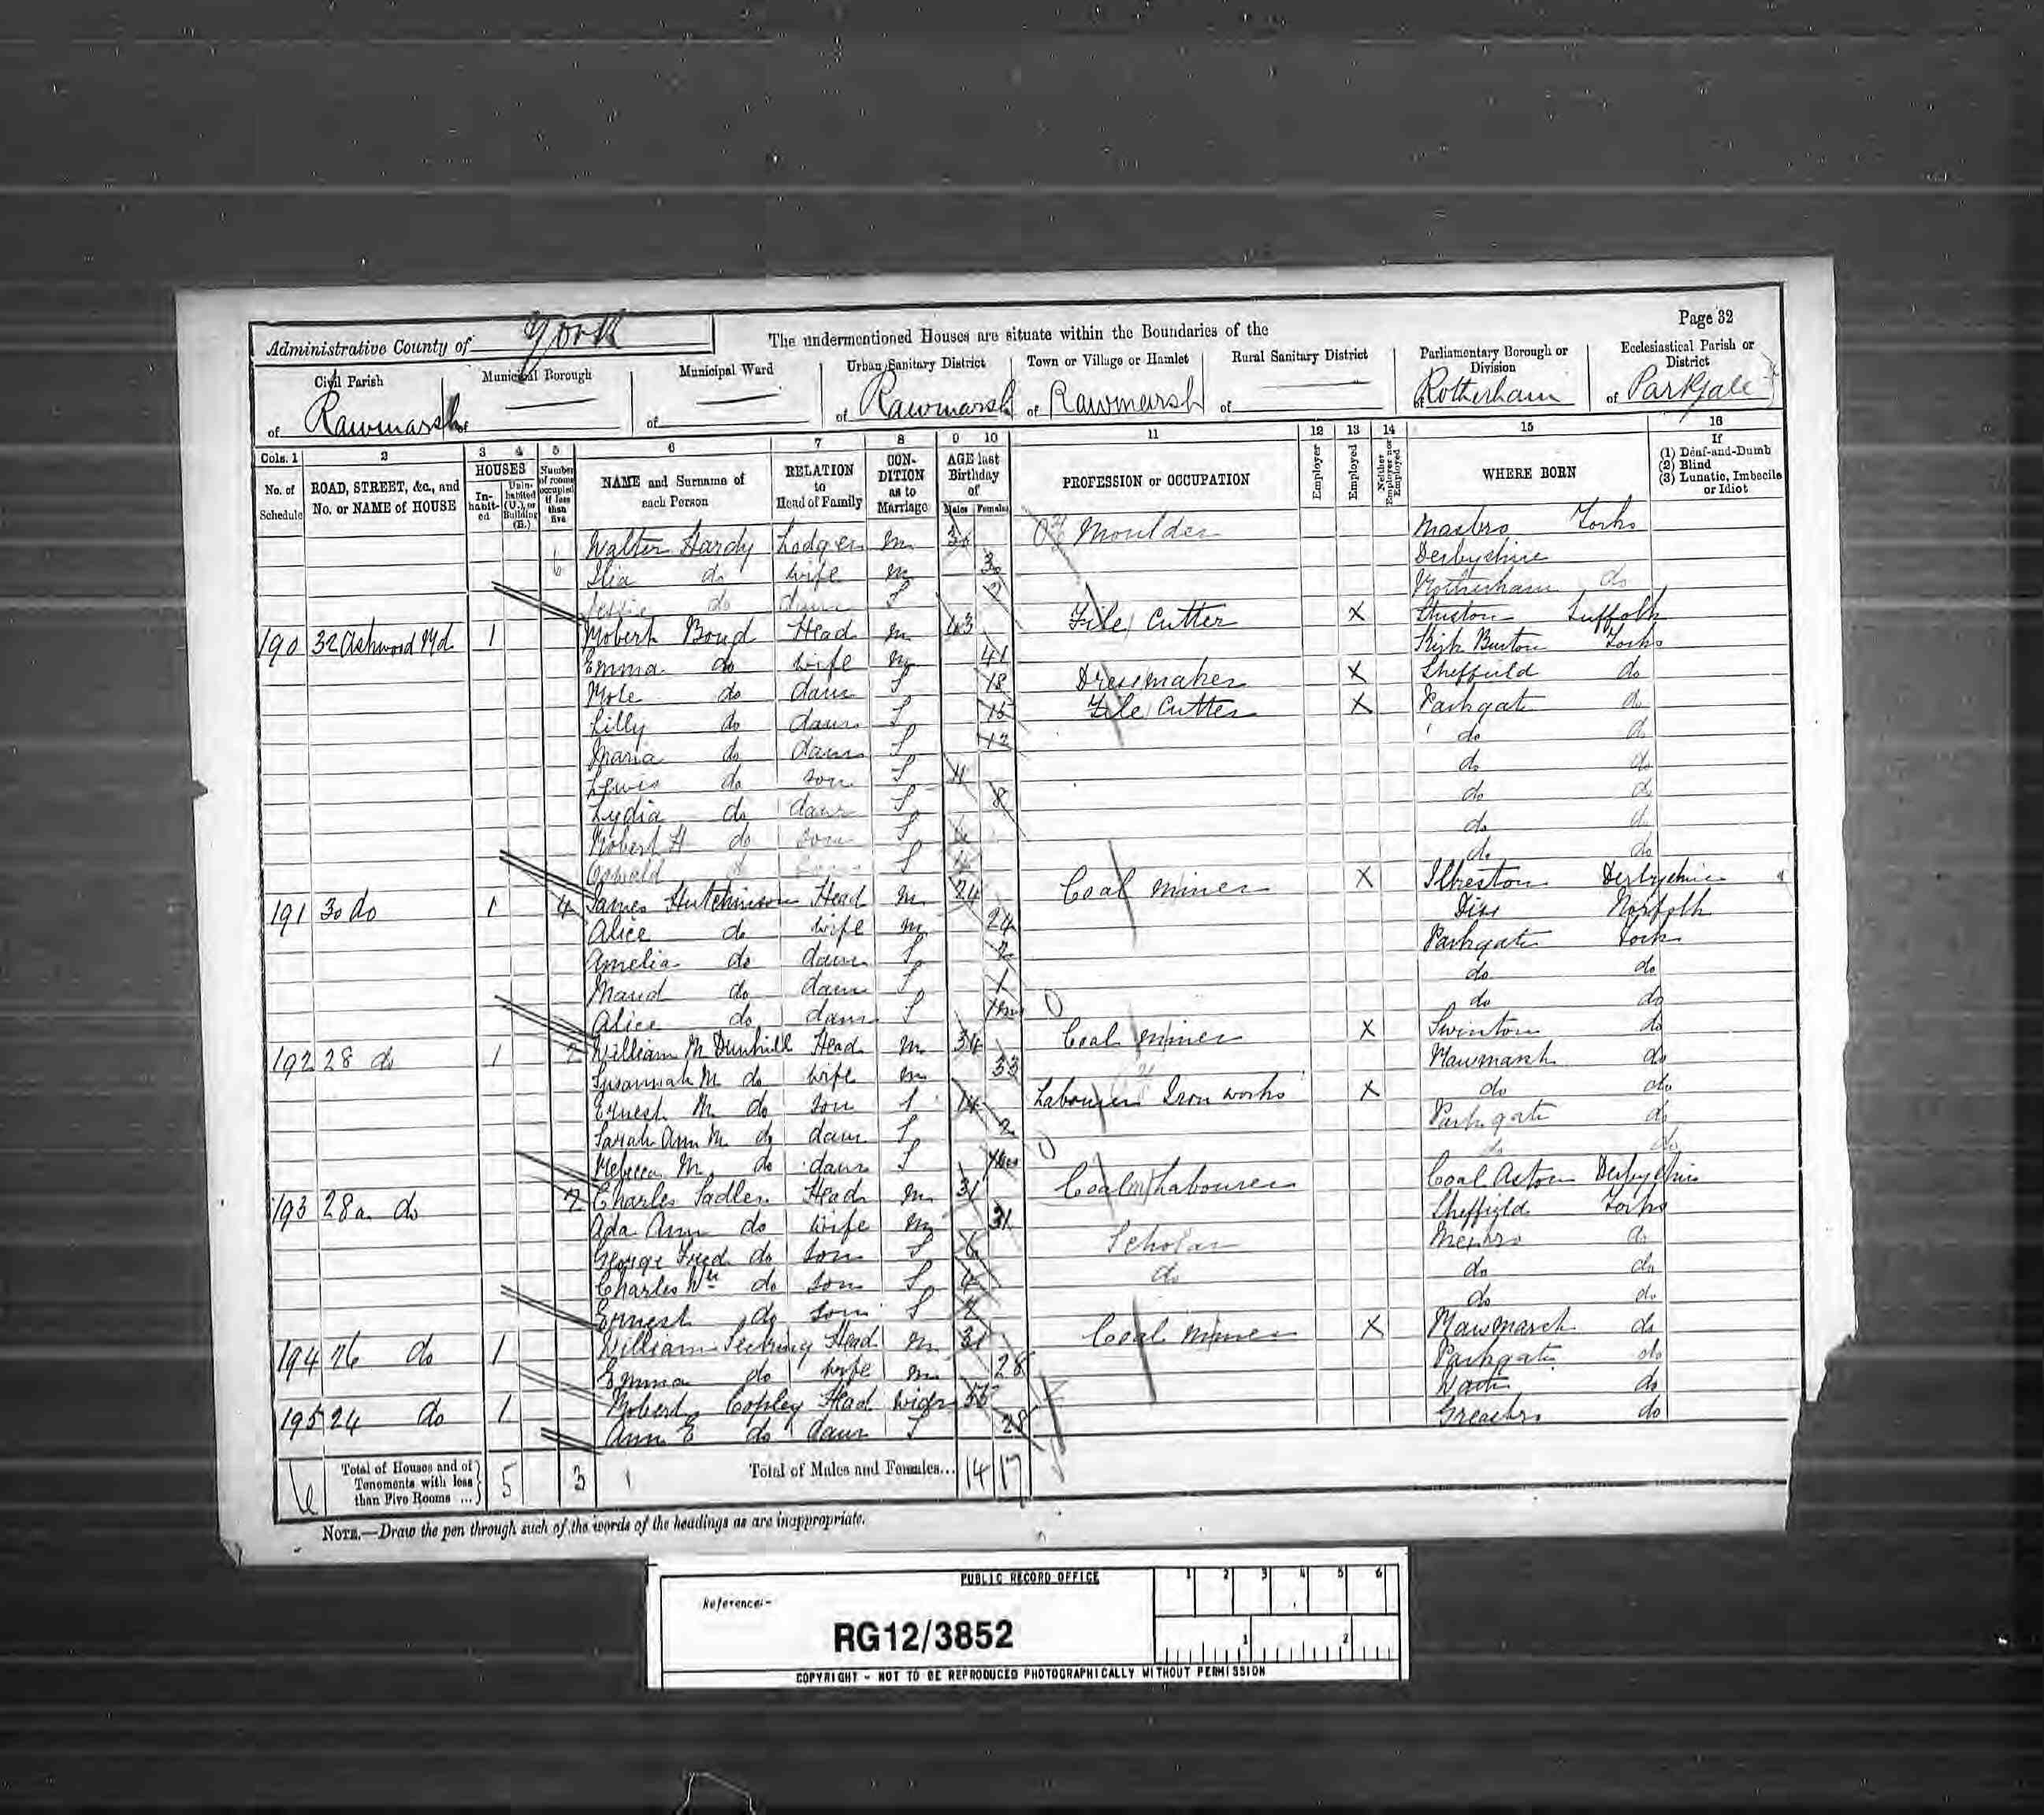 Page 32
Administrative County of York The undermentioned Houses are situate within the Boundaries of the
Civil Parish Municipal Borough Municipal Ward Urban Sanitary District Town or Village or Hamlet Rural Sanitary District Parliamentary Borough or Division Ecclesiastical Parish or District
of Rawmarsh of of of Rawmarsh of Rawmarsh of of Rotherham of Parkgate
Cols. 1 2 3 4 5 6 7 8 9 10 11 12 13 14 15 16
No. of Schedule ROAD, STREET, &c., and No. or NAME of HOUSE HOUSES Inhabited Uninhabited (U.), or Building (B.) Number of rooms occupied if less than five NAME and Surname of each Person RELATION to Head of Family CONDITION as to Marriage AGE last Birthday of Males Females PROFESSION or OCCUPATION Employer Employed Neither Employer nor Employed WHERE BORN If (1) Deaf-and-Dumb (2) Blind (3) Lunatic, Imbecile or Idiot
Walter Hardy Lodger M Moulder Masbro Yorks
do wife M 30 Derbyshire
do daur S Rotherham do
190 32 Ashwood Rd 1 Robert Bond Head M 43 File Cutter X Suffolk
Emma do wife M 41 Kirk Burton Yorks
do daur S 18 Dressmaker X Sheffield do
Lilly do daur S 15 File Cutter X Parkgate do
Maria do daur S 12 do do
Lewis do son S 11 do do
Lydia do daur S 8 do do
Robert H do son S do do
Oswald do S do do
191 30 do 1 4 James Hutchinson Head M 24 Coal Miner X Ilkeston Derbyshire
Alice do wife M 24 Diss Norfolk
Amelia do daur S 2 Parkgate York
Maud do daur S 1 do do
Alice do daur S do do
192 28 do 1 2 William M Dunhill Head M 34 Coal Miner X Swinton do
Susannah M do wife M 33 Rawmarsh do
Ernest M do son S 14 Labourer Iron works X do do
Sarah Ann M do daur S 2 Parkgate do
Rebecca M do daur S do do
193 28a do 2 Charles Sadler Head M 31 Coal Labourer Coal Aston Derbyshire
Ada Ann do wife M 31 Sheffield Yorks
George Fred do son S 6 Scholar do
Charles Wm do son S 4 do do do
Ernest do son S 2 do do
194 26 do 1 William Head M 31 Coal Miner X Rawmarsh do
Emma do wife M 28 Parkgate do
195 24 do 1 Robert Copley Head widr Wath do
Ann E do daur S 28 Greasbro do
6 Total of Houses and of Tenements with less than Five Rooms ... 5 3 Total of Males and Females... 14 17
NOTE.—Draw the pen through such of the words of the headings as are inappropriate.
PUBLIC RECORD OFFICE
1 2 3 4 5 6
Reference:-
RG12/3852
1 2
COPYRIGHT - NOT TO BE REPRODUCED PHOTOGRAPHICALLY WITHOUT PERMISSION